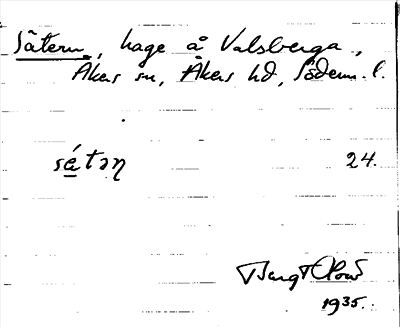 Sätern, hage å Valsberga,
Åkers sn, Åkers hd, Söderm. l.
sátəη 24.
Bengt
1935.